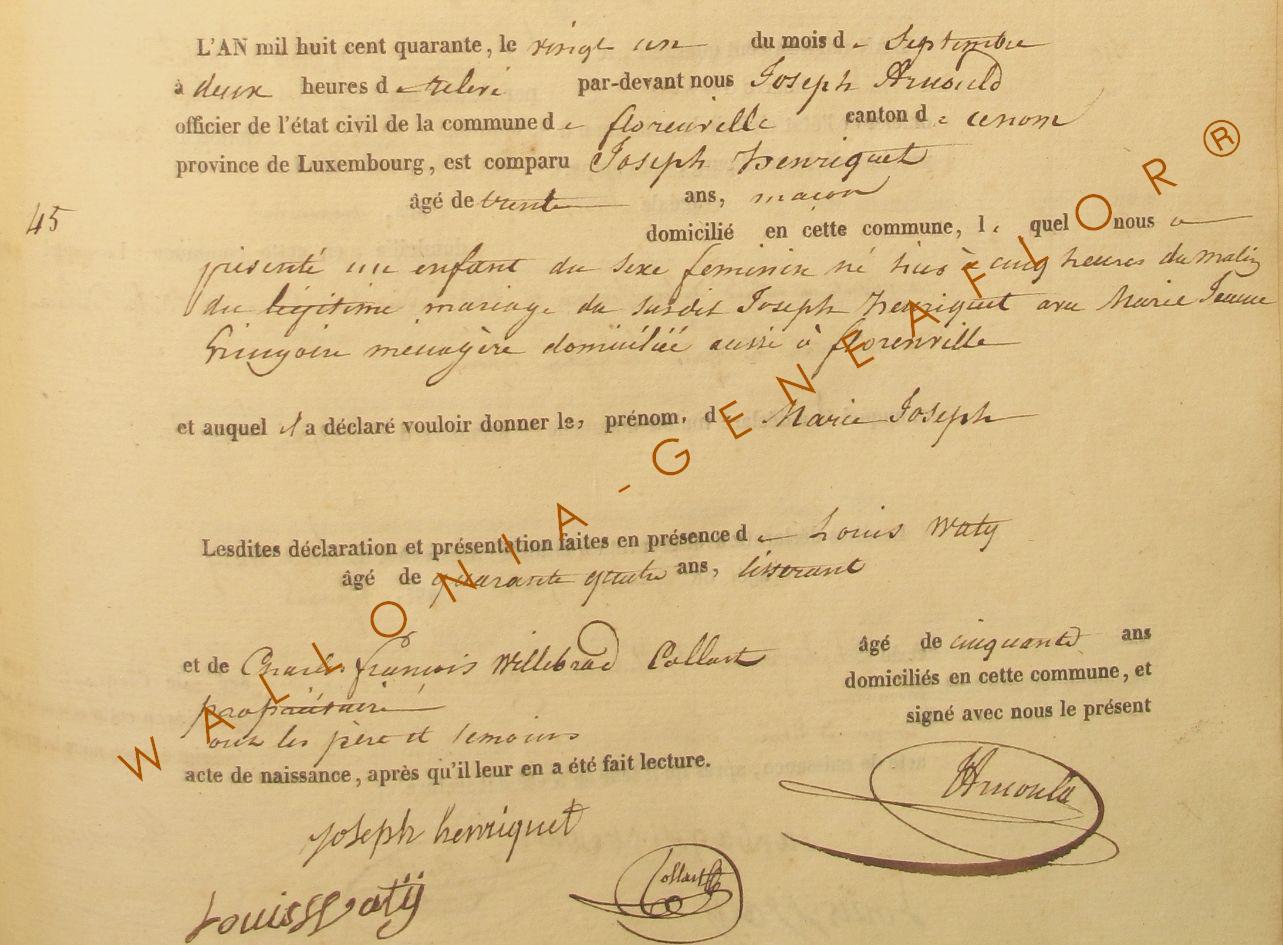 L'AN mil huit cent quarante, le vingt un du mois de Septembre
à deux heures de relevé par-devant nous Joseph Arnould
officier de l'état civil de la commune de florenville canton de
province de Luxembourg, est comparu Joseph Henriquet
âgé de trente ans, maçon
45
domicilié en cette commune, le quel nous a
présenté un enfant du sexe feminin né hier à cinq heures du matin
du légitime mariage du susdit Joseph Henriquet avec Marie Jeanne
ménagère domiciliée aussi à florenville
et auquel il a déclaré vouloir donner les prénoms de Marie Joseph
Lesdites déclaration et présentation faites en présence de Louis Waty
âgé de quarante quatre ans, tisserant
et de Charles françois Willebrod Collart âgé de cinquante ans
propriétaire domiciliés en cette commune, et
ont les père et temoins signé avec nous le présent
acte de naissance, après qu'il leur en a été fait lecture.
JArnould
Joseph henriquet
Louis Watÿ
Collart
WALLONIA-GENEAFLOR ®